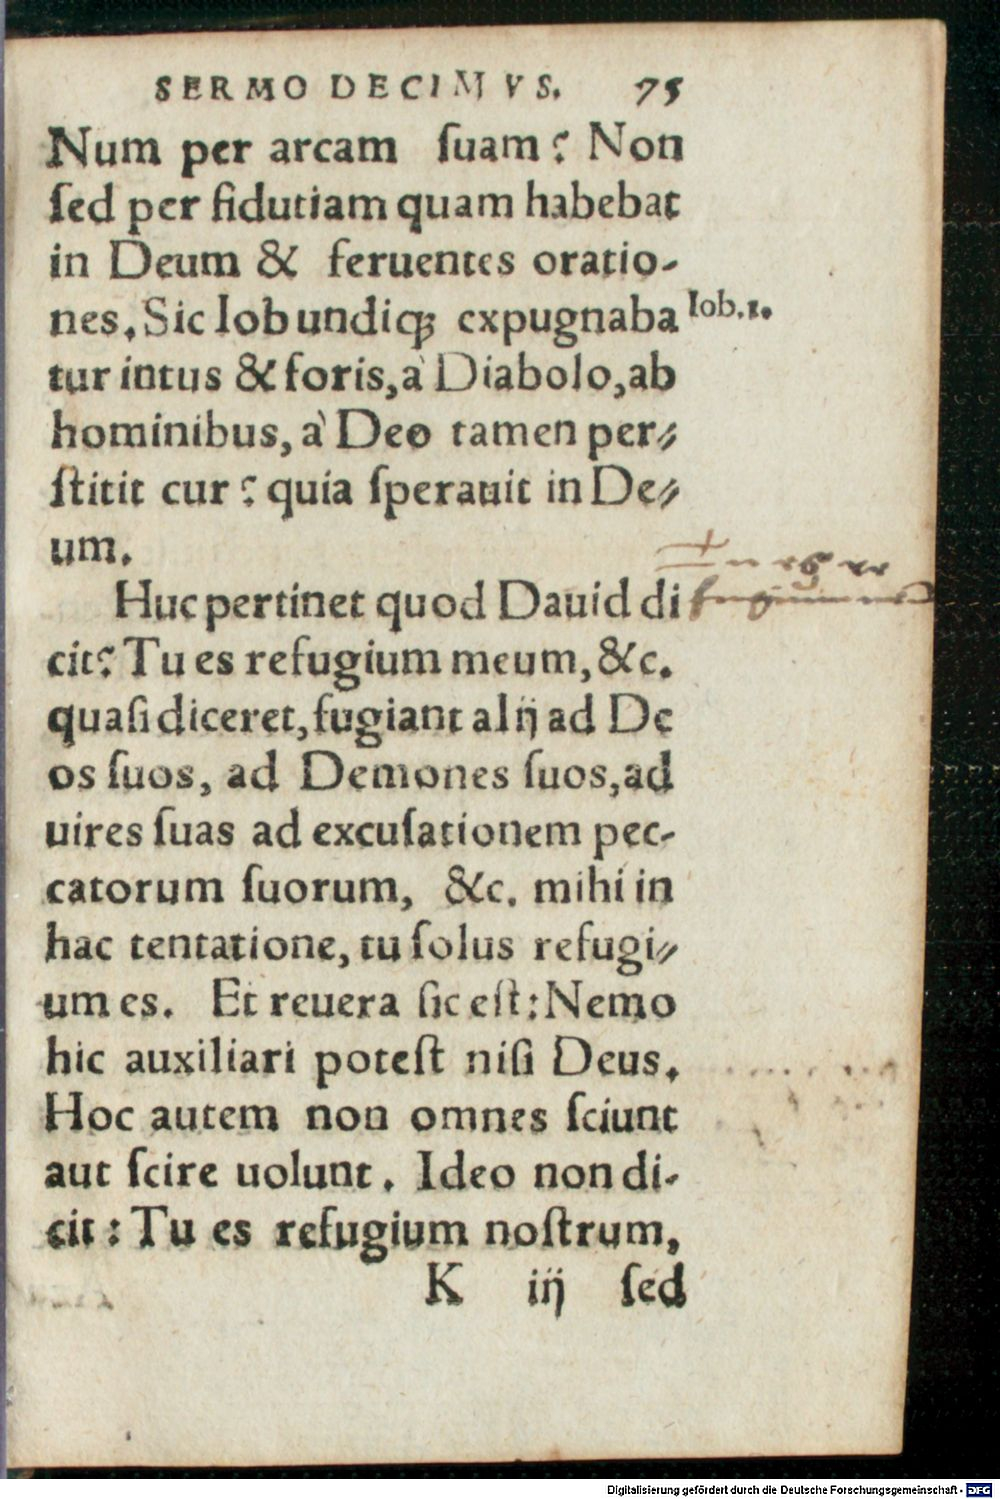 SERMO DECIMVS. 75
Num per arcam ſuam? Non
ſed per fidutiam quam habebat
in Deum & feruentes oratio-
nes. Sic Iob undiq; expugnaba Iob.1.
tur intus & foris, à Diabolo, ab
hominibus, à Deo tamen per-
ſtitit cur? quia ſperauit in De-
um.
Huc pertinet quod Dauid di
cit? Tu es refugium meum, &c.
quaſi diceret, fugiant alij ad De
os ſuos, ad Demones ſuos, ad
uires ſuas ad excuſationem pec-
catorum ſuorum, &c. mihi in
hac tentatione, tu ſolus refugi-
um es. Et reuera ſic eſt: Nemo
hic auxiliari poteſt niſi Deus.
Hoc autem non omnes ſciunt
aut ſcire uolunt. Ideo non di-
cit: Tu es refugium noſtrum,
K iij ſed
Digitalisierung gefördert durch die Deutsche Forschungsgemeinschaft - DFG